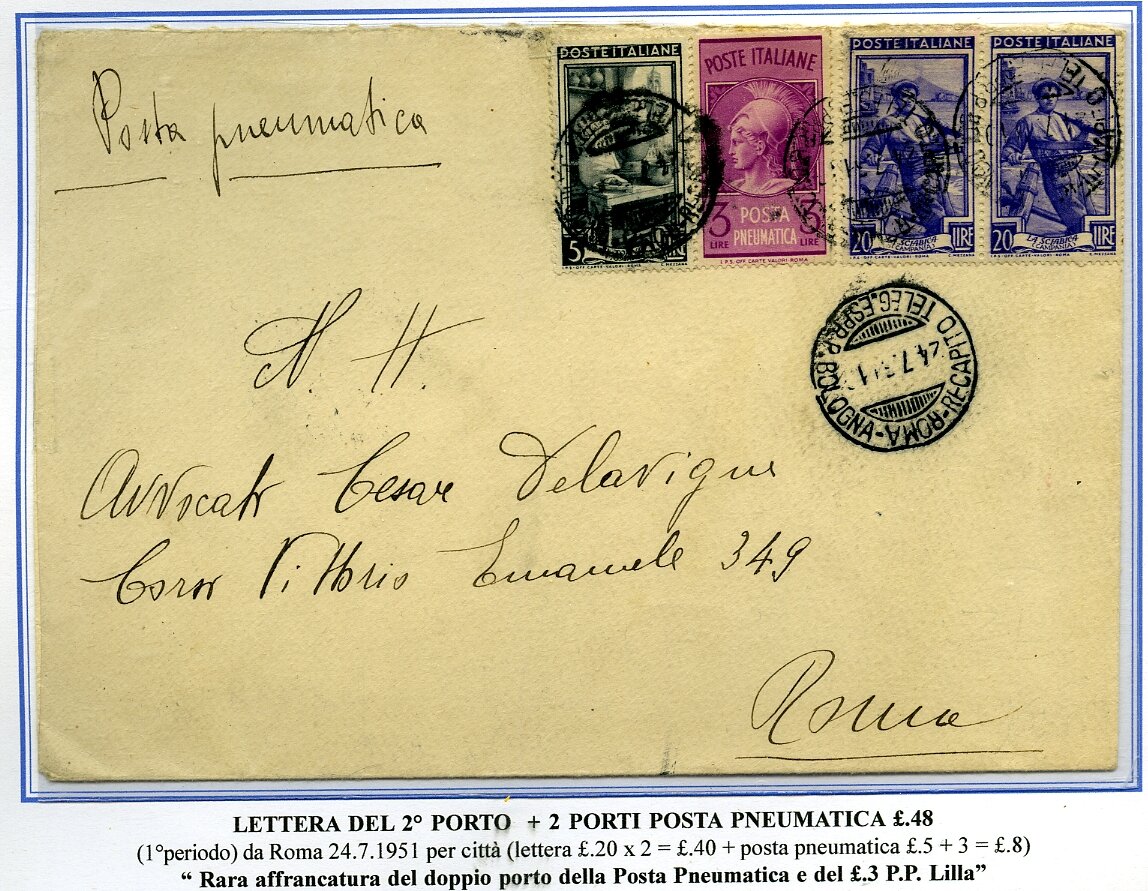 Posta pneumatica
POSTE ITALIANE
5 LIRE
I.P.S. OFF. CARTE-VALORI-ROMA C. MEZZANA
POSTE ITALIANE
3 LIRE POSTA PNEUMATICA 3 LIRE
I.P.S. OFF. CARTE VALORI-ROMA
POSTE ITALIANE
20 LA SCIABICA (CAMPANIA) LIRE
I.P.S. OFF. CARTE-VALORI-ROMA C. MEZZANA
POSTE ITALIANE
20 LA SCIABICA (CAMPANIA) LIRE
I.P.S. OFF. CARTE-VALORI-ROMA C. MEZZANA
ROMA-RECAPITO TELEG.ESPR.P.BOLOGNA-
24.7.51
N. H.
Avvocato Cesare Delavigne
Corso Vittorio Emanuele 349
Roma
LETTERA DEL 2° PORTO + 2 PORTI POSTA PNEUMATICA £.48
(1°periodo) da Roma 24.7.1951 per città (lettera £.20 x 2 = £.40 + posta pneumatica £.5 + 3 = £.8)
“ Rara affrancatura del doppio porto della Posta Pneumatica e del £.3 P.P. Lilla”